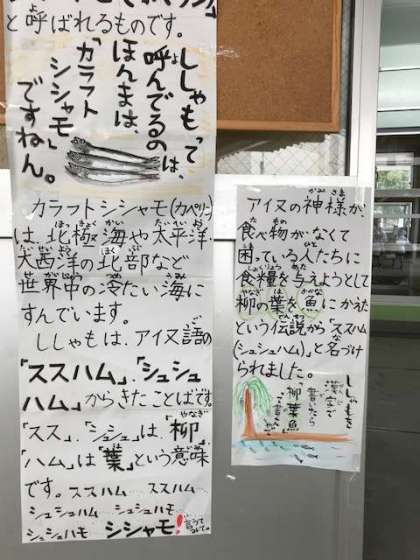 と呼ばれるものです。
ししゃもって
呼んでるのは、
ほんまは、
「カラフト
シシャモ」
ですねん。
カラフトシシャモ(カペリン)
は、北極海や太平洋
大西洋の北部など
世界中の冷たい海に
すんでいます。
ししゃもは、アイヌ語の
「ススハム」、「シュシュ
ハム」からきたことばです。
「スス」、「シュシュ」は、「柳」
「ハム」は「葉」という意味
です。ススハム ススハム
シュシュハム シュシュハモ
シュシュハモ シシャモ!
アイヌの神様が、
食べ物がなくて
困っている人たちに
食糧を与えようとして
柳の葉を魚にかえた
という伝説から「ススハム
(シュシュハム)」と名づけ
られました。
ししゃもを
漢字で
書いたら
「柳葉魚」